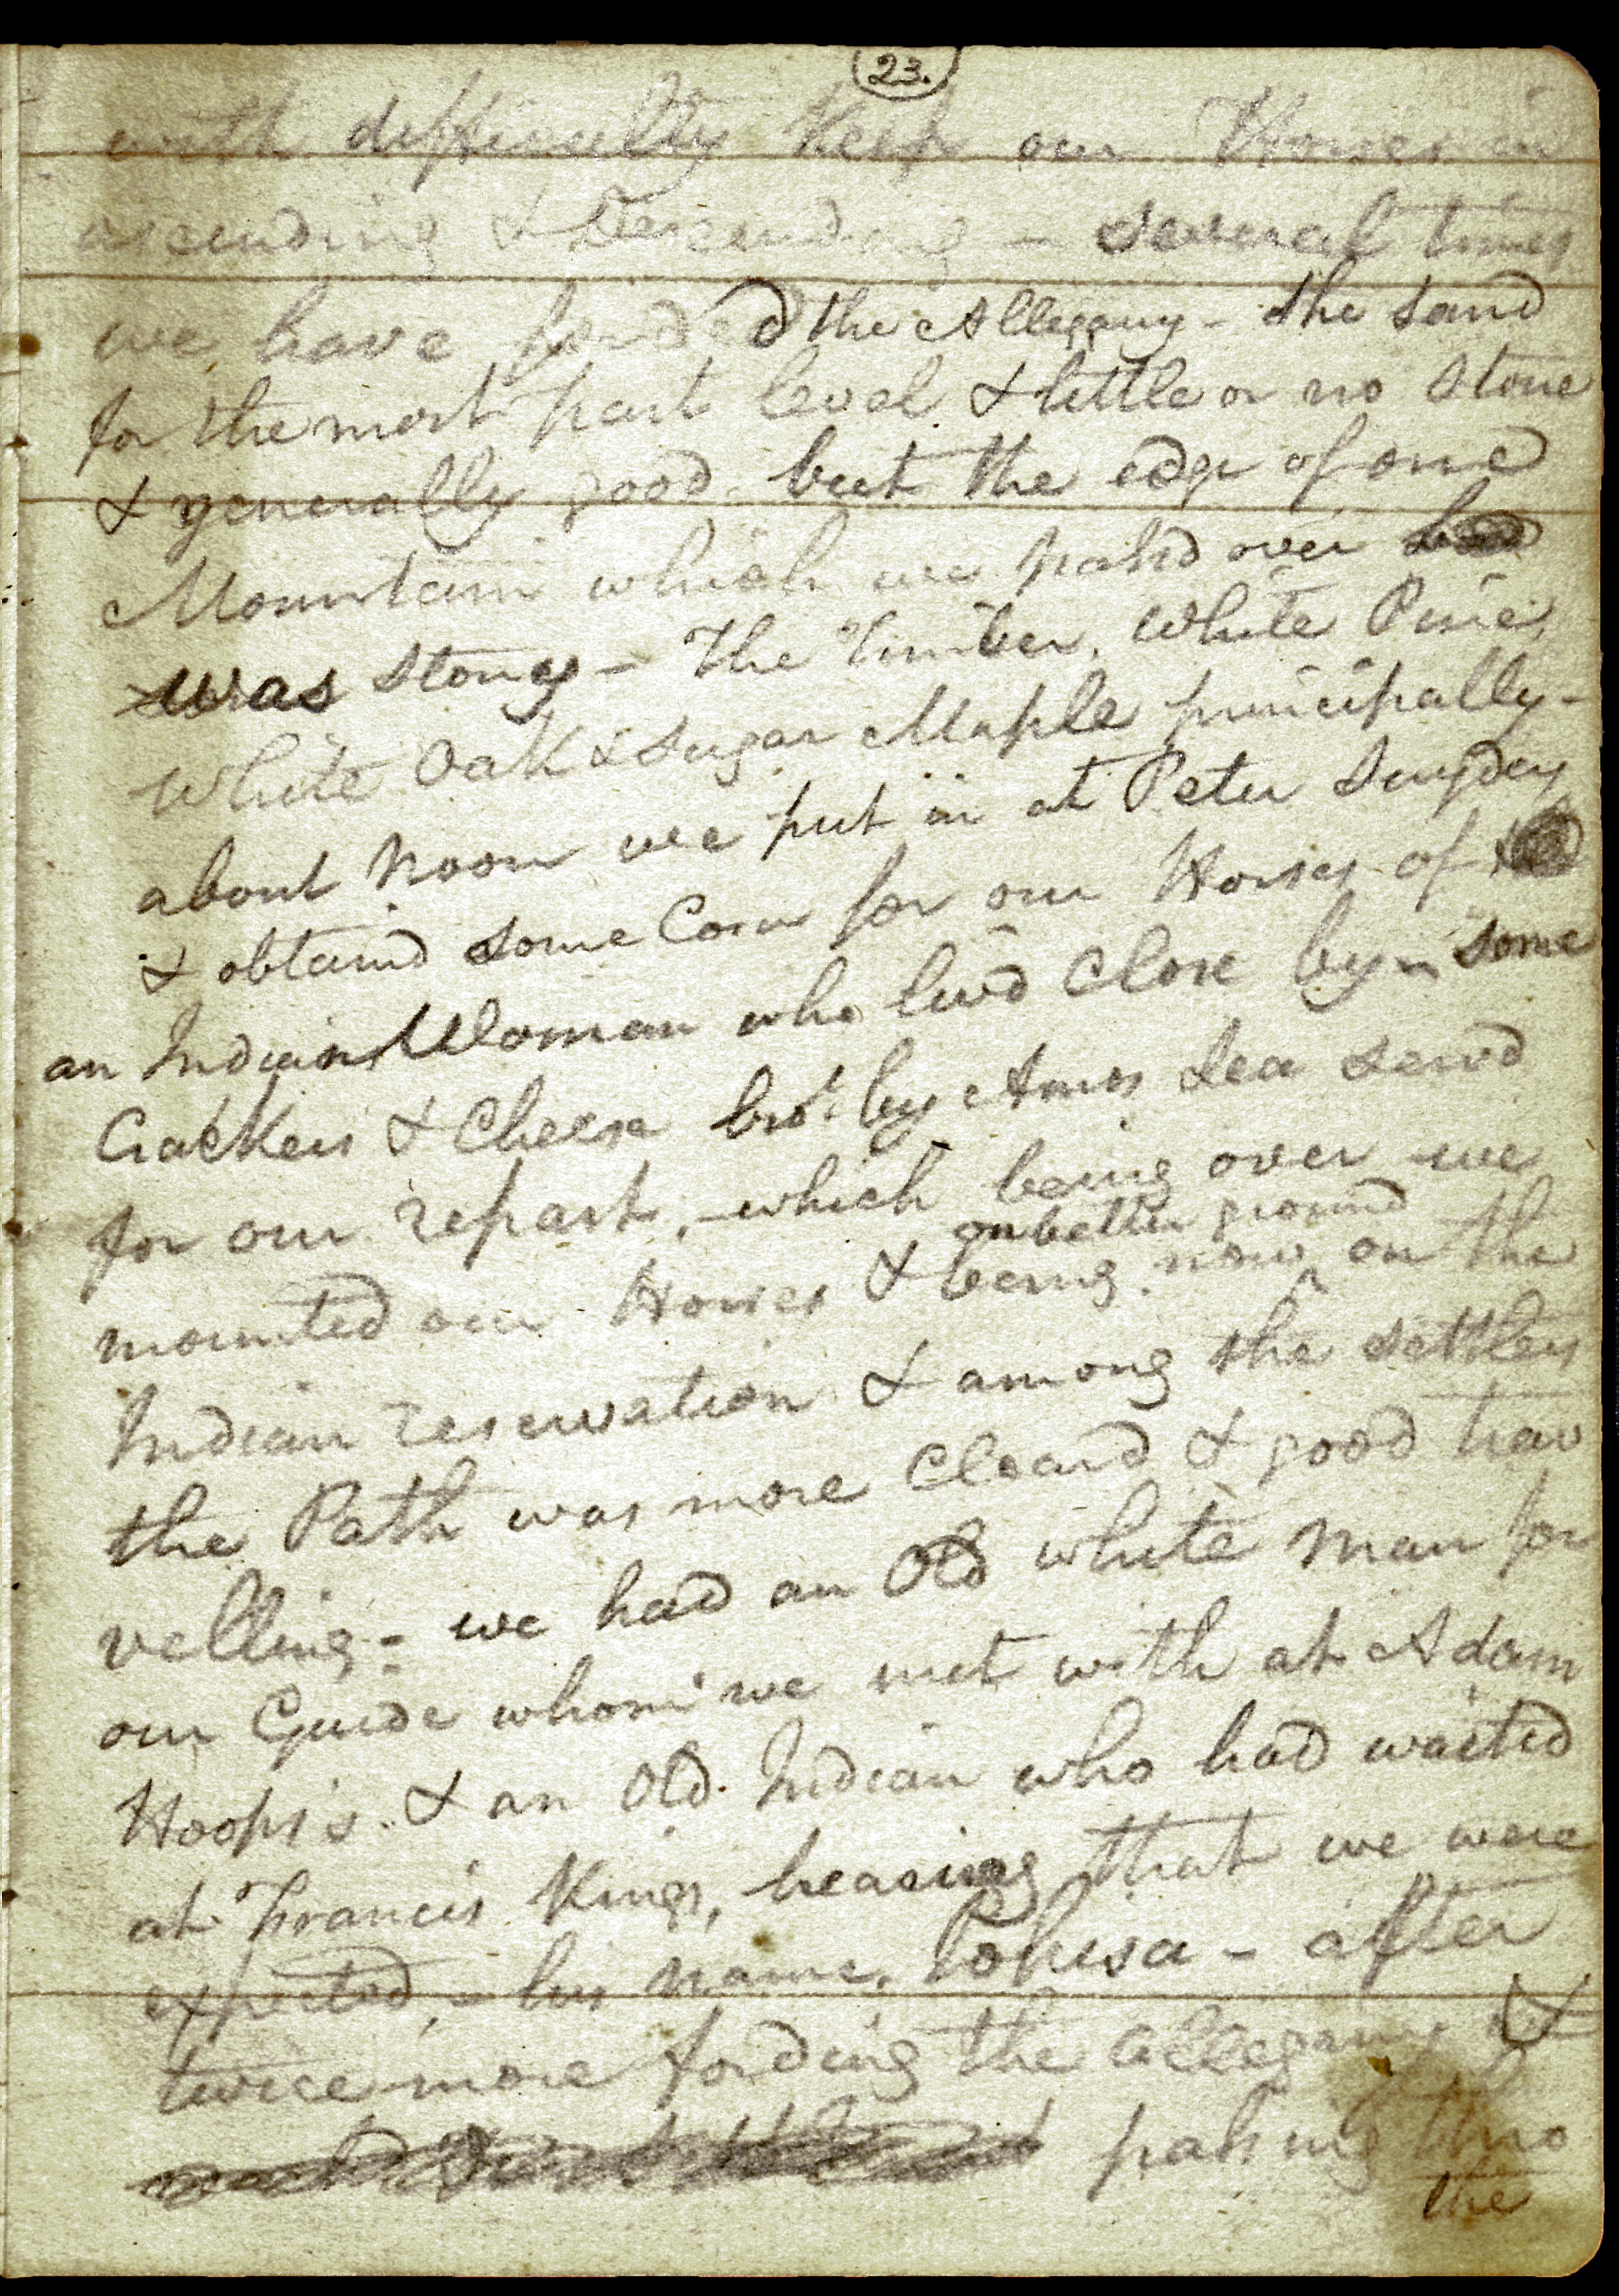 23.
with difficulty keep our Horses in
ascending & Descending - several times
we have forded the Allegany - the Land
for the most part level & little or no Stone
& generally good but the edge of one
Mountain which we pass'd over
was Stoney - The Timber, White Pine,
White Oak & Sugar Maple principally -
about Noon we put in at Peter
& obtaind some Corn for our Horses of
an Indian Woman who liv'd Close by - some
Crackers & Cheese bro.t by Amos Lea serv'd
for our repast, - which being over we
on better ground
mounted our Horses & being now ^ on the
Indian reservation & among the settlers
the Path was more Cleard & good trav
velling - we had an Old white Man for
our Guide whom we met with at Adam
Hoops's & an Old Indian who had waited
at Francis Kings, hearing that we were
expected, - his Name, - after
twice more fording the Allegany &
passing thro
the